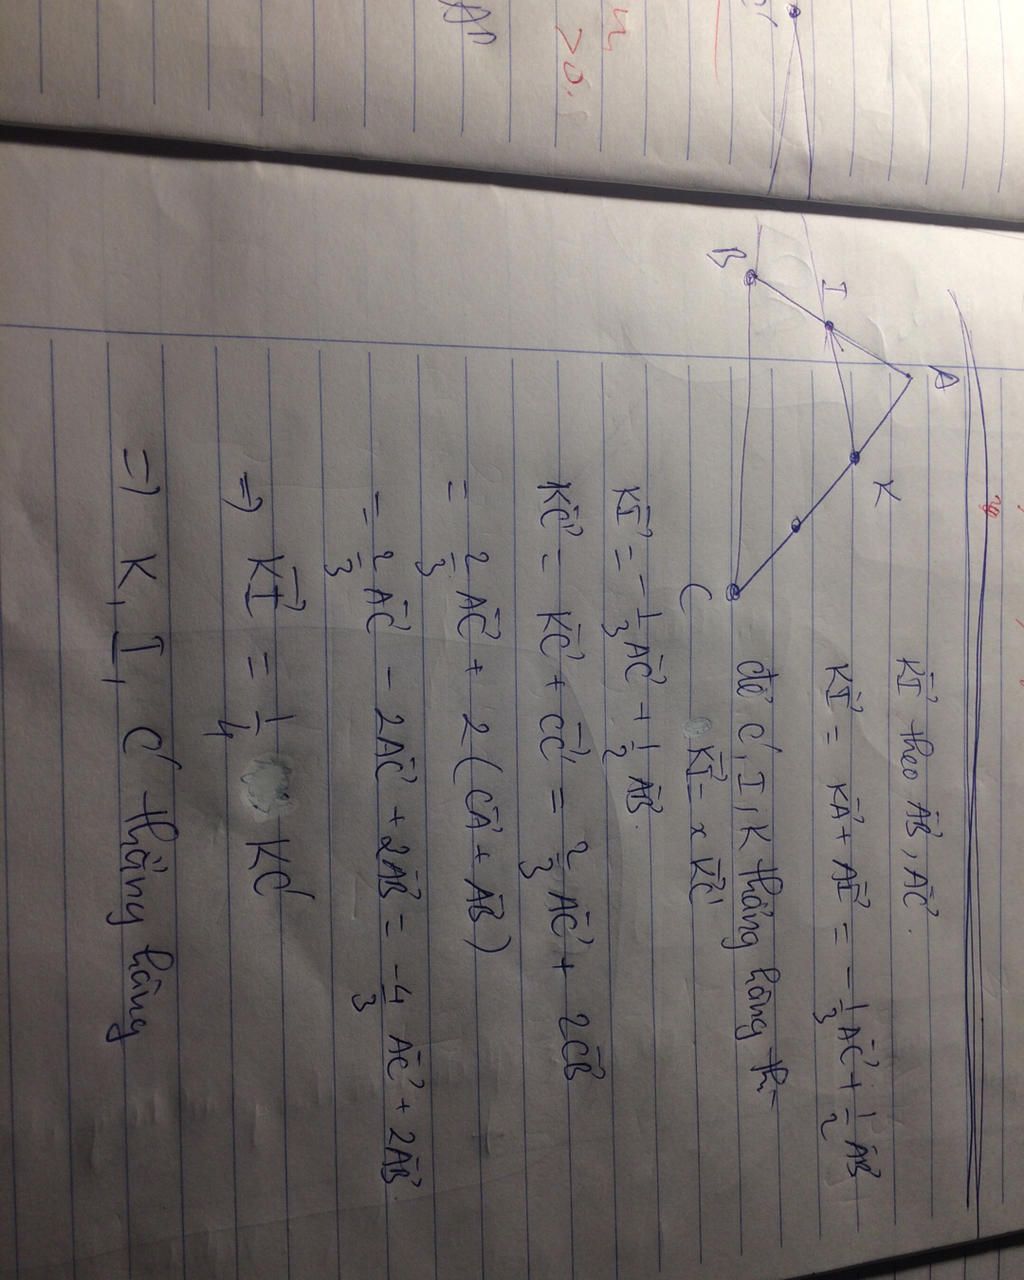 AD
> 0.
A
B
I
K
C
K⃗I theo A⃗B, A⃗C.
K⃗I = K⃗A + A⃗I = -1/3 A⃗C + 1/2 A⃗B
để C', I, K thẳng hàng thì
K⃗I = x K⃗C'
K⃗I = -1/3 A⃗C + 1/2 A⃗B.
K⃗C' = K⃗C + C⃗C' = 2/3 A⃗C + 2C⃗B
= 2/3 A⃗C + 2(C⃗A + A⃗B)
= 2/3 A⃗C - 2A⃗C + 2A⃗B = -4/3 A⃗C + 2A⃗B.
=> K⃗I = 1/4 KC'
=> K, I, C' thẳng hàng